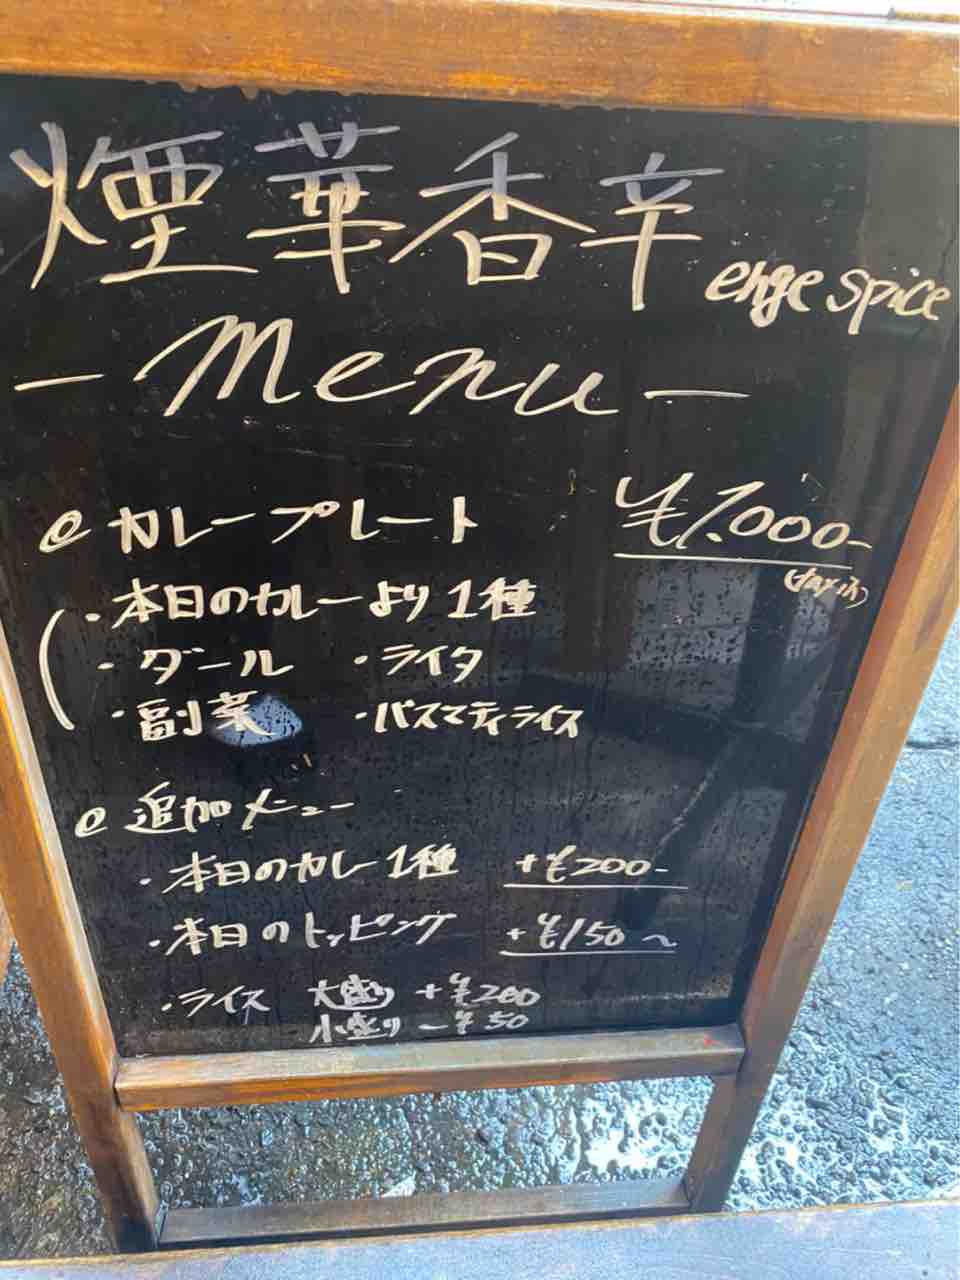 煙華香辛 enge spice
-Menu-
カレープレート ¥1,000-
(tax in)
・本日のカレーより1種
・ダール ・ライタ
・副菜 ・バスマティライス
追加メニュー
・本日のカレー1種 +¥200-
・本日のトッピング +¥150〜
・ライス 大盛り +¥200
小盛り -¥50